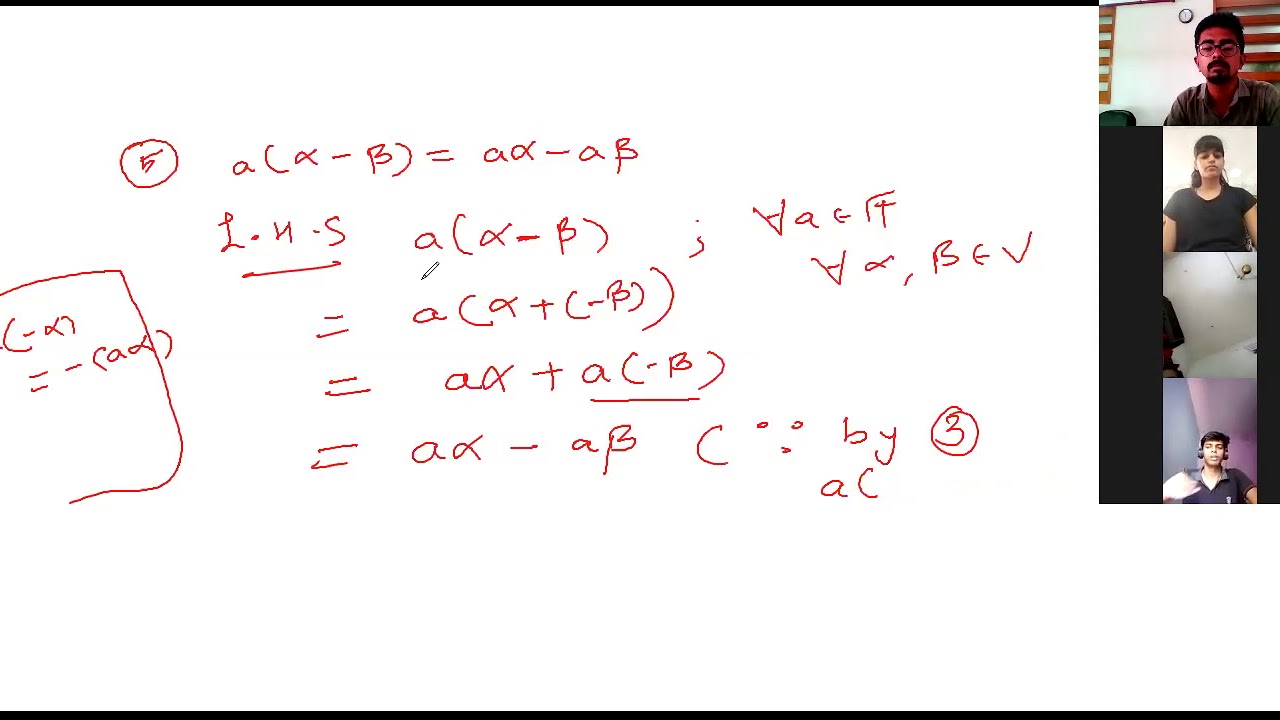 ⑤ a(α - β) = aα - aβ
L.H.S a(α - β) ; ∀ a ∈ F
∀ α, β ∈ V
= a(α + (-β))
(-α)
= -(aα)
= aα + a(-β)
= aα - aβ (∵ by ③
a(